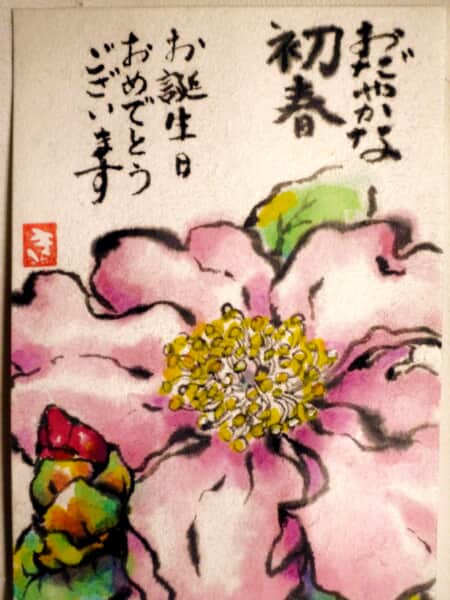 おだやかな
初春
お誕生日
おめでとう
ございます